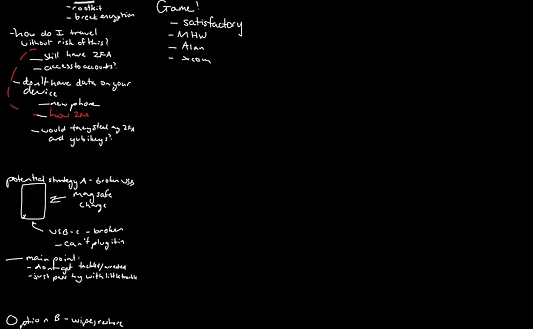 - rootkit
- break encryption
- how do I travel
without risk of this?
- still have 2FA
- access to accounts?
- don't have data on your
device
- new phone
- how 2FA
- would they steal my 2FA
and yubikeys?
potential strategy A - broken USB
mag safe
charge
USB-C - broken
- can't plug it in
- main point:
- don't get
- just pass by with little
Option B - wipe, restore
Game!
- satisfactory
- MHW
- Alan
- xcom